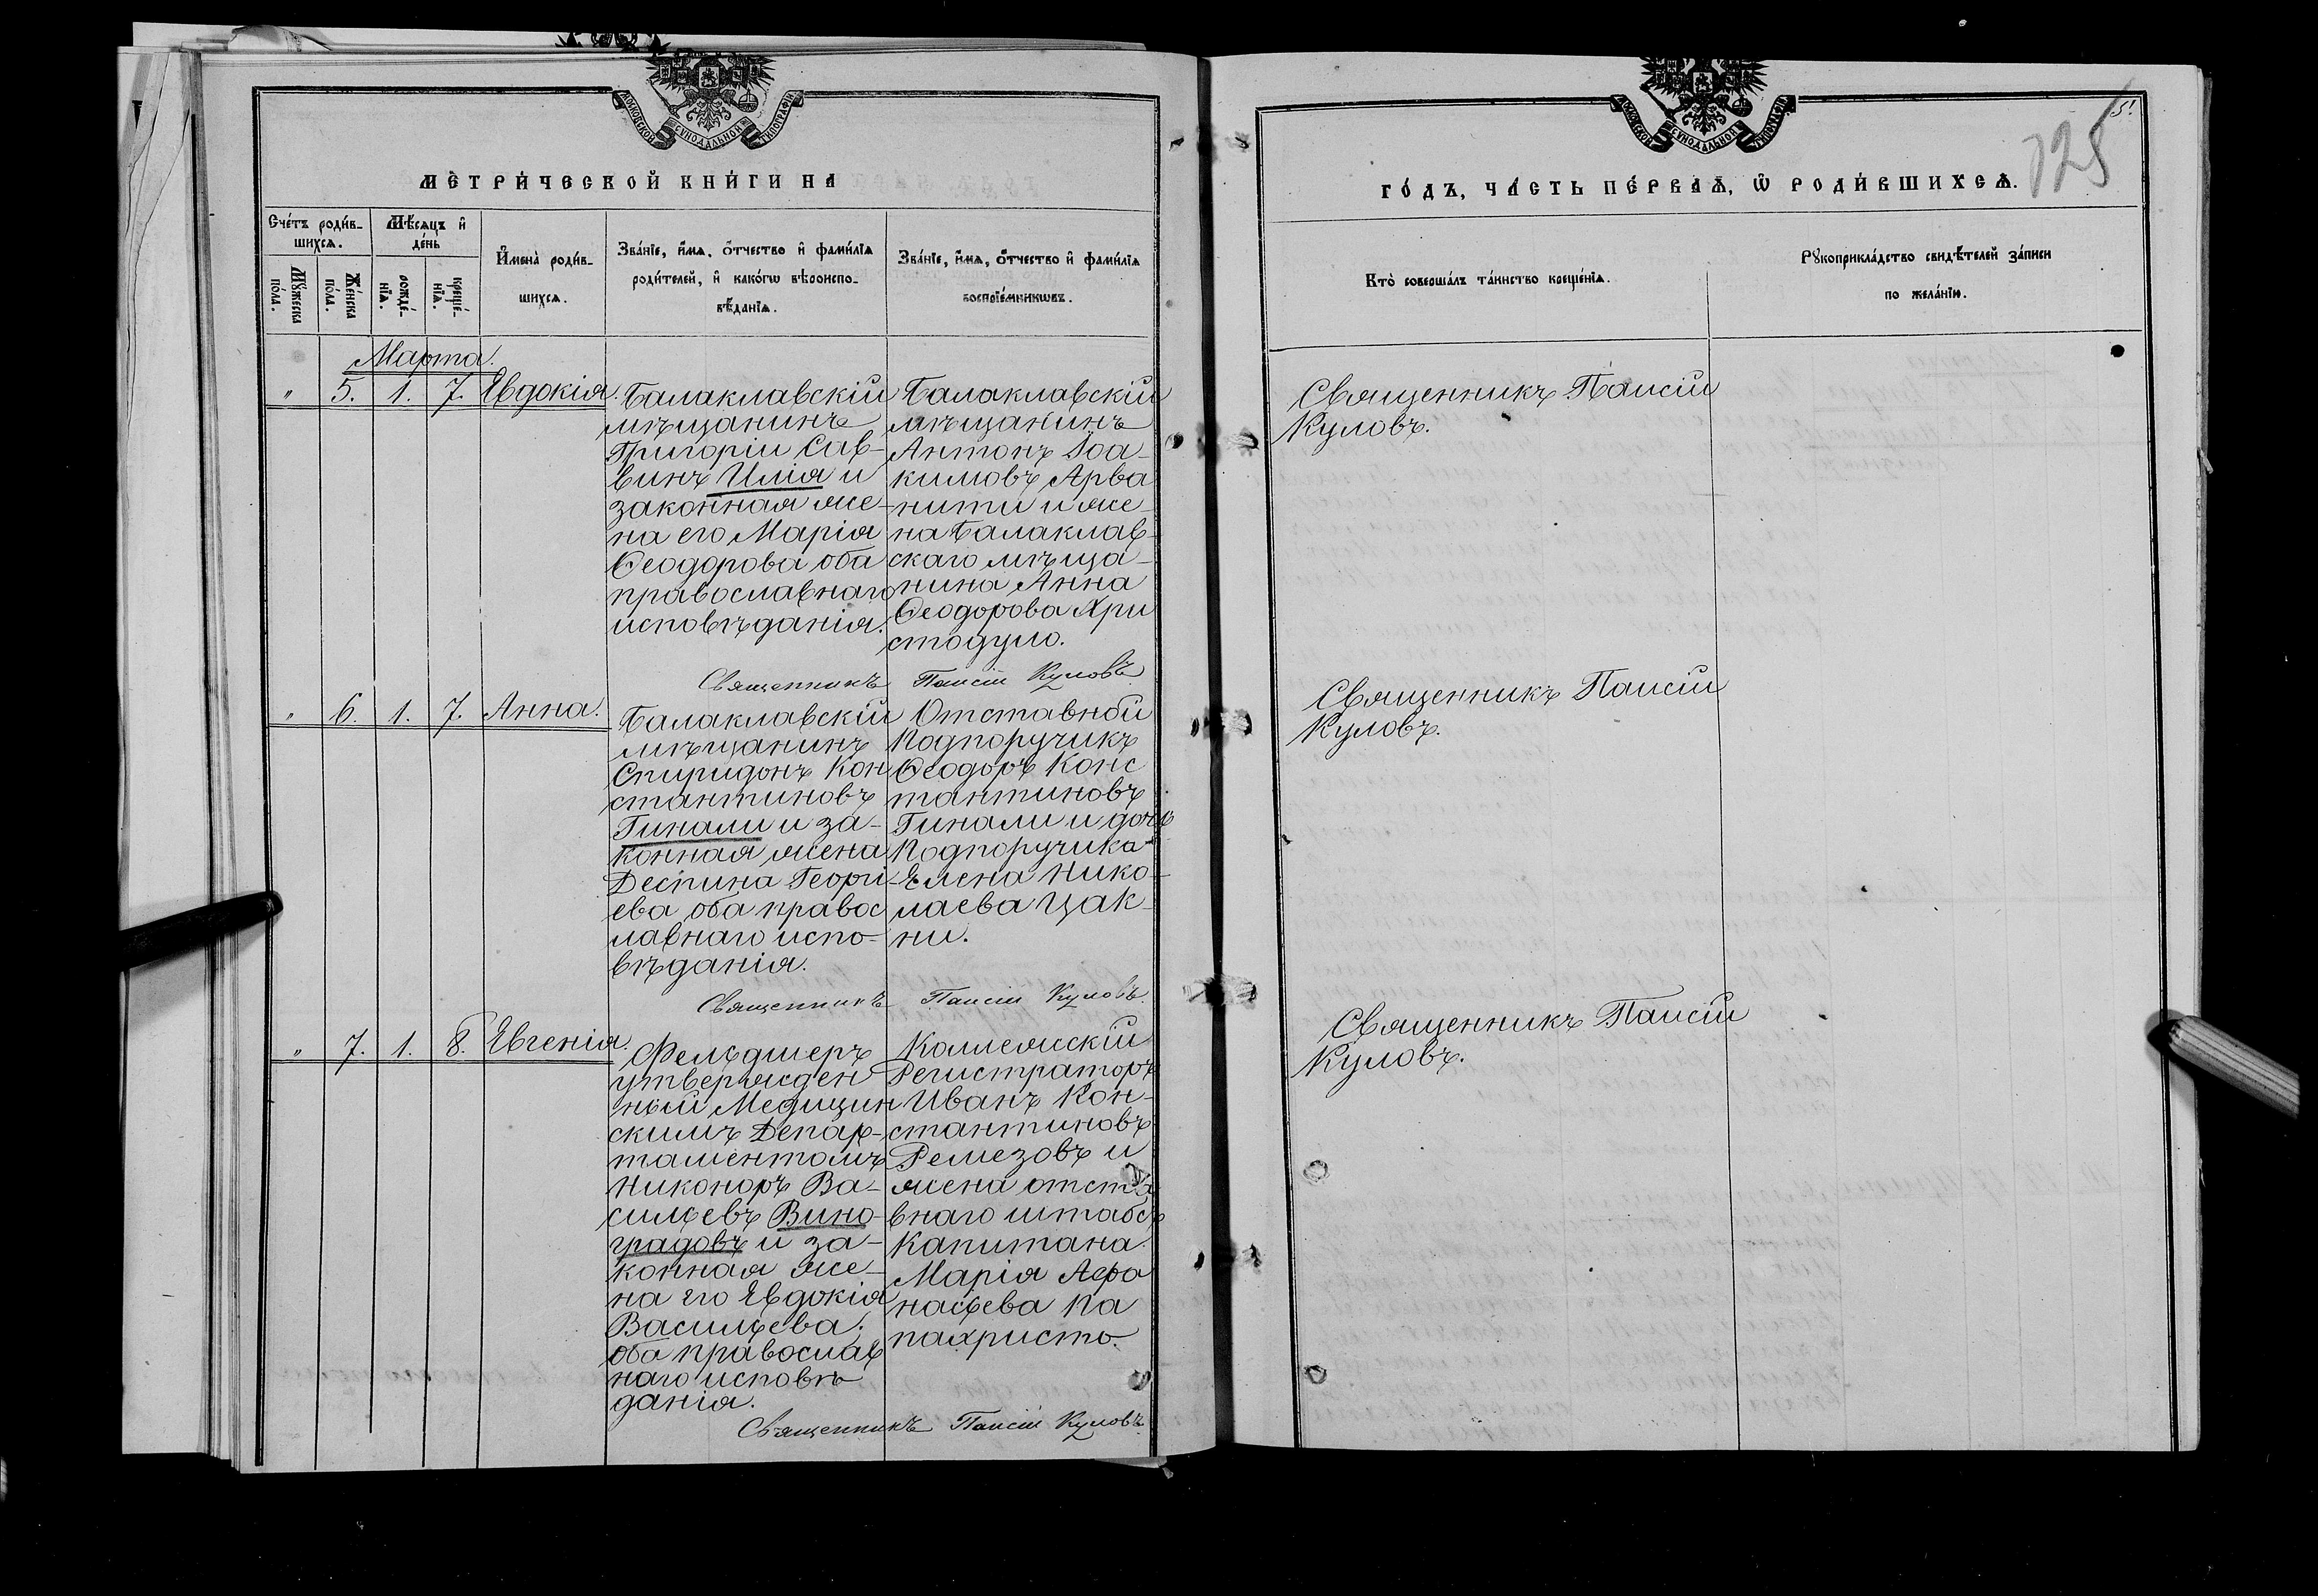 МОСКОВСКОЙ СѴНОДАЛЬНОЙ ТИПОГРАФІИ
МЕТРИ́ЧЕСКОЙ КНИ́ГИ НА
Сче́тъ роди́в-
шихсѧ.
Мѣ́сѧцъ и҆
де́нь
Мꙋ́жеска
по́ла.
Же́нска
по́ла.
рожде́-
нїѧ.
креще́-
нїѧ.
И҆мена̀ роди́в-
шихсѧ.
Зва́нїе, и҆́мѧ, ѻ҆́тчество и҆ фами́лїѧ
роди́телей, и҆ како́гѡ вѣроиспо-
вѣ́данїѧ.
Зва́нїе, и҆́мѧ, ѻ҆́тчество и҆ фами́лїѧ
воспрїе́мникѡвъ.
Марта.
" 5. 1. 7. Евдокія.
Балаклавскій
мѣщанинъ
Григорій Сав-
винъ Илія и
законная же-
на его Марія
Ѳеодорова оба
православнаго
исповѣданія.
Балаклавскій
мѣщанинъ
Антонъ Іоа-
кимовъ Арва
нити и же-
на Балаклав-
скаго мѣща-
нина Анна
Ѳеодорова Хри
стодуло.
Священникъ Паисій Куловъ
" 6. 1. 7. Анна.
Балаклавскій
мѣщанинъ
Спиридонъ Кон
стантиновъ
Гинали и за-
конная жена
Деспина Георгі-
ева оба правос
лавнаго испо-
вѣданія.
Отставной
Подпоручикъ
Ѳеодоръ Конс
тантиновъ
Гинали и дочь
Подпоручика
Елена Нико-
лаева Цак-
ни.
Священникъ Паисій Куловъ.
" 7. 1. 8. Евгенія.
Фельдшеръ
утвержден
ный Медицин
скимъ Депар-
таментомъ
Никоноръ Ва-
сильевъ Вино-
градовъ и за-
конная же-
на его Евдокія
Васильева,
оба православ
наго исповѣ
данія.
Коллежскій
Регистраторъ
Иванъ Кон-
стантиновъ
Ремезовъ и
жена отста
внаго штабсъ
Капитана
Марія Афа
насьева Па
пахристо.
Священникъ Паисій Куловъ.
МОСКОВСКОЙ СѴНОДАЛЬНОЙ ТИПОГРАФІИ
51.
125
ГО́ДЪ, ЧА́СТЬ ПЕ́РВАѦ, Ѡ҆ РОДИ́ВШИХСѦ.
Кто̀ соверша́лъ та́инство креще́нїѧ.
Рꙋкоприкла́дство свидѣ́телей за́писи
по жела́нїю.
Священникъ Паисій
Куловъ.
Священникъ Паисій
Куловъ.
Священникъ Паисій
Куловъ.